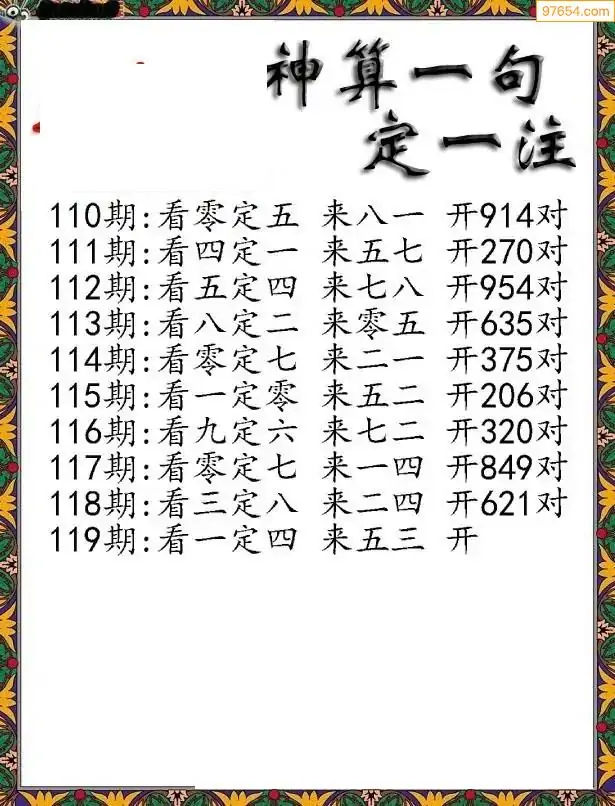 97654.com
神算一句
定一注
110期:看零定五 来八一 开914对
111期:看四定一 来五七 开270对
112期:看五定四 来七八 开954对
113期:看八定二 来零五 开635对
114期:看零定七 来二一 开375对
115期:看一定零 来五二 开206对
116期:看九定六 来七二 开320对
117期:看零定七 来一四 开849对
118期:看三定八 来二四 开621对
119期:看一定四 来五三 开